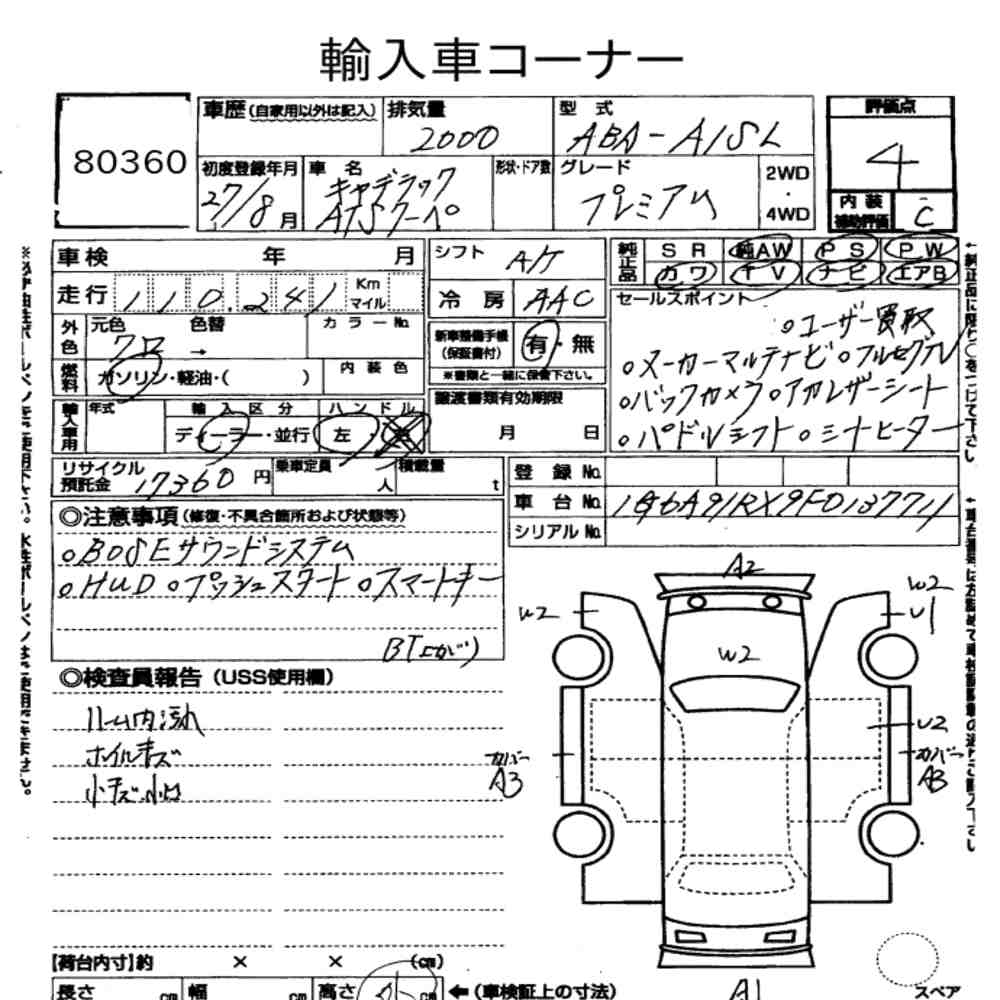 輸入車コーナー
80360
車歴(自家用以外は記入) 排気量 2000 型式 ABA-A1SL
評価点 4
初度登録年月 27/8月 車名 キャデラック ATSクーペ 形状・ドア数 グレード プレミアム 2WD・4WD
内装補助評価 C
車検 年 月
シフト A/T
純正品 SR 純AW PS PW
カワ TV ナビ エアB
走行 110,241 Km マイル
冷房 AAC
セールスポイント
○ユーザー買取
○メーカーマルチナビ ○フルセグTV
○バックカメラ ○アカレザーシート
○パドルシフト ○シートヒーター
外色 元色 クロ 色替 → カラーNo.
新車整備手帳(保証書付) 有・無
※書類と一緒に保管下さい。
燃料 ガソリン・軽油・( ) 内装色
譲渡書類有効期限
月 日
輸入車用 年式 輸入区分 ディーラー・並行 ハンドル 左・右
リサイクル預託金 17360円 乗車定員 人 積載量 t
登録No.
車台No. 1G6A91RX9F0137711
シリアルNo.
◎注意事項(修復・不具合箇所および状態等)
○BOSEサウンドシステム
○HUD ○プッシュスタート ○スマートキー
BT上がり)
◎検査員報告(USS使用欄)
ルーム内汚れ
ホイルキズ
小キズ・小凹
A2
W2
W2
U1
W2
U2
カバー
A3
カバー
A3
A1
スペア
【荷台内寸】約 × × (cm)
長さ cm 幅 cm 高さ cm ←(車検証上の寸法)